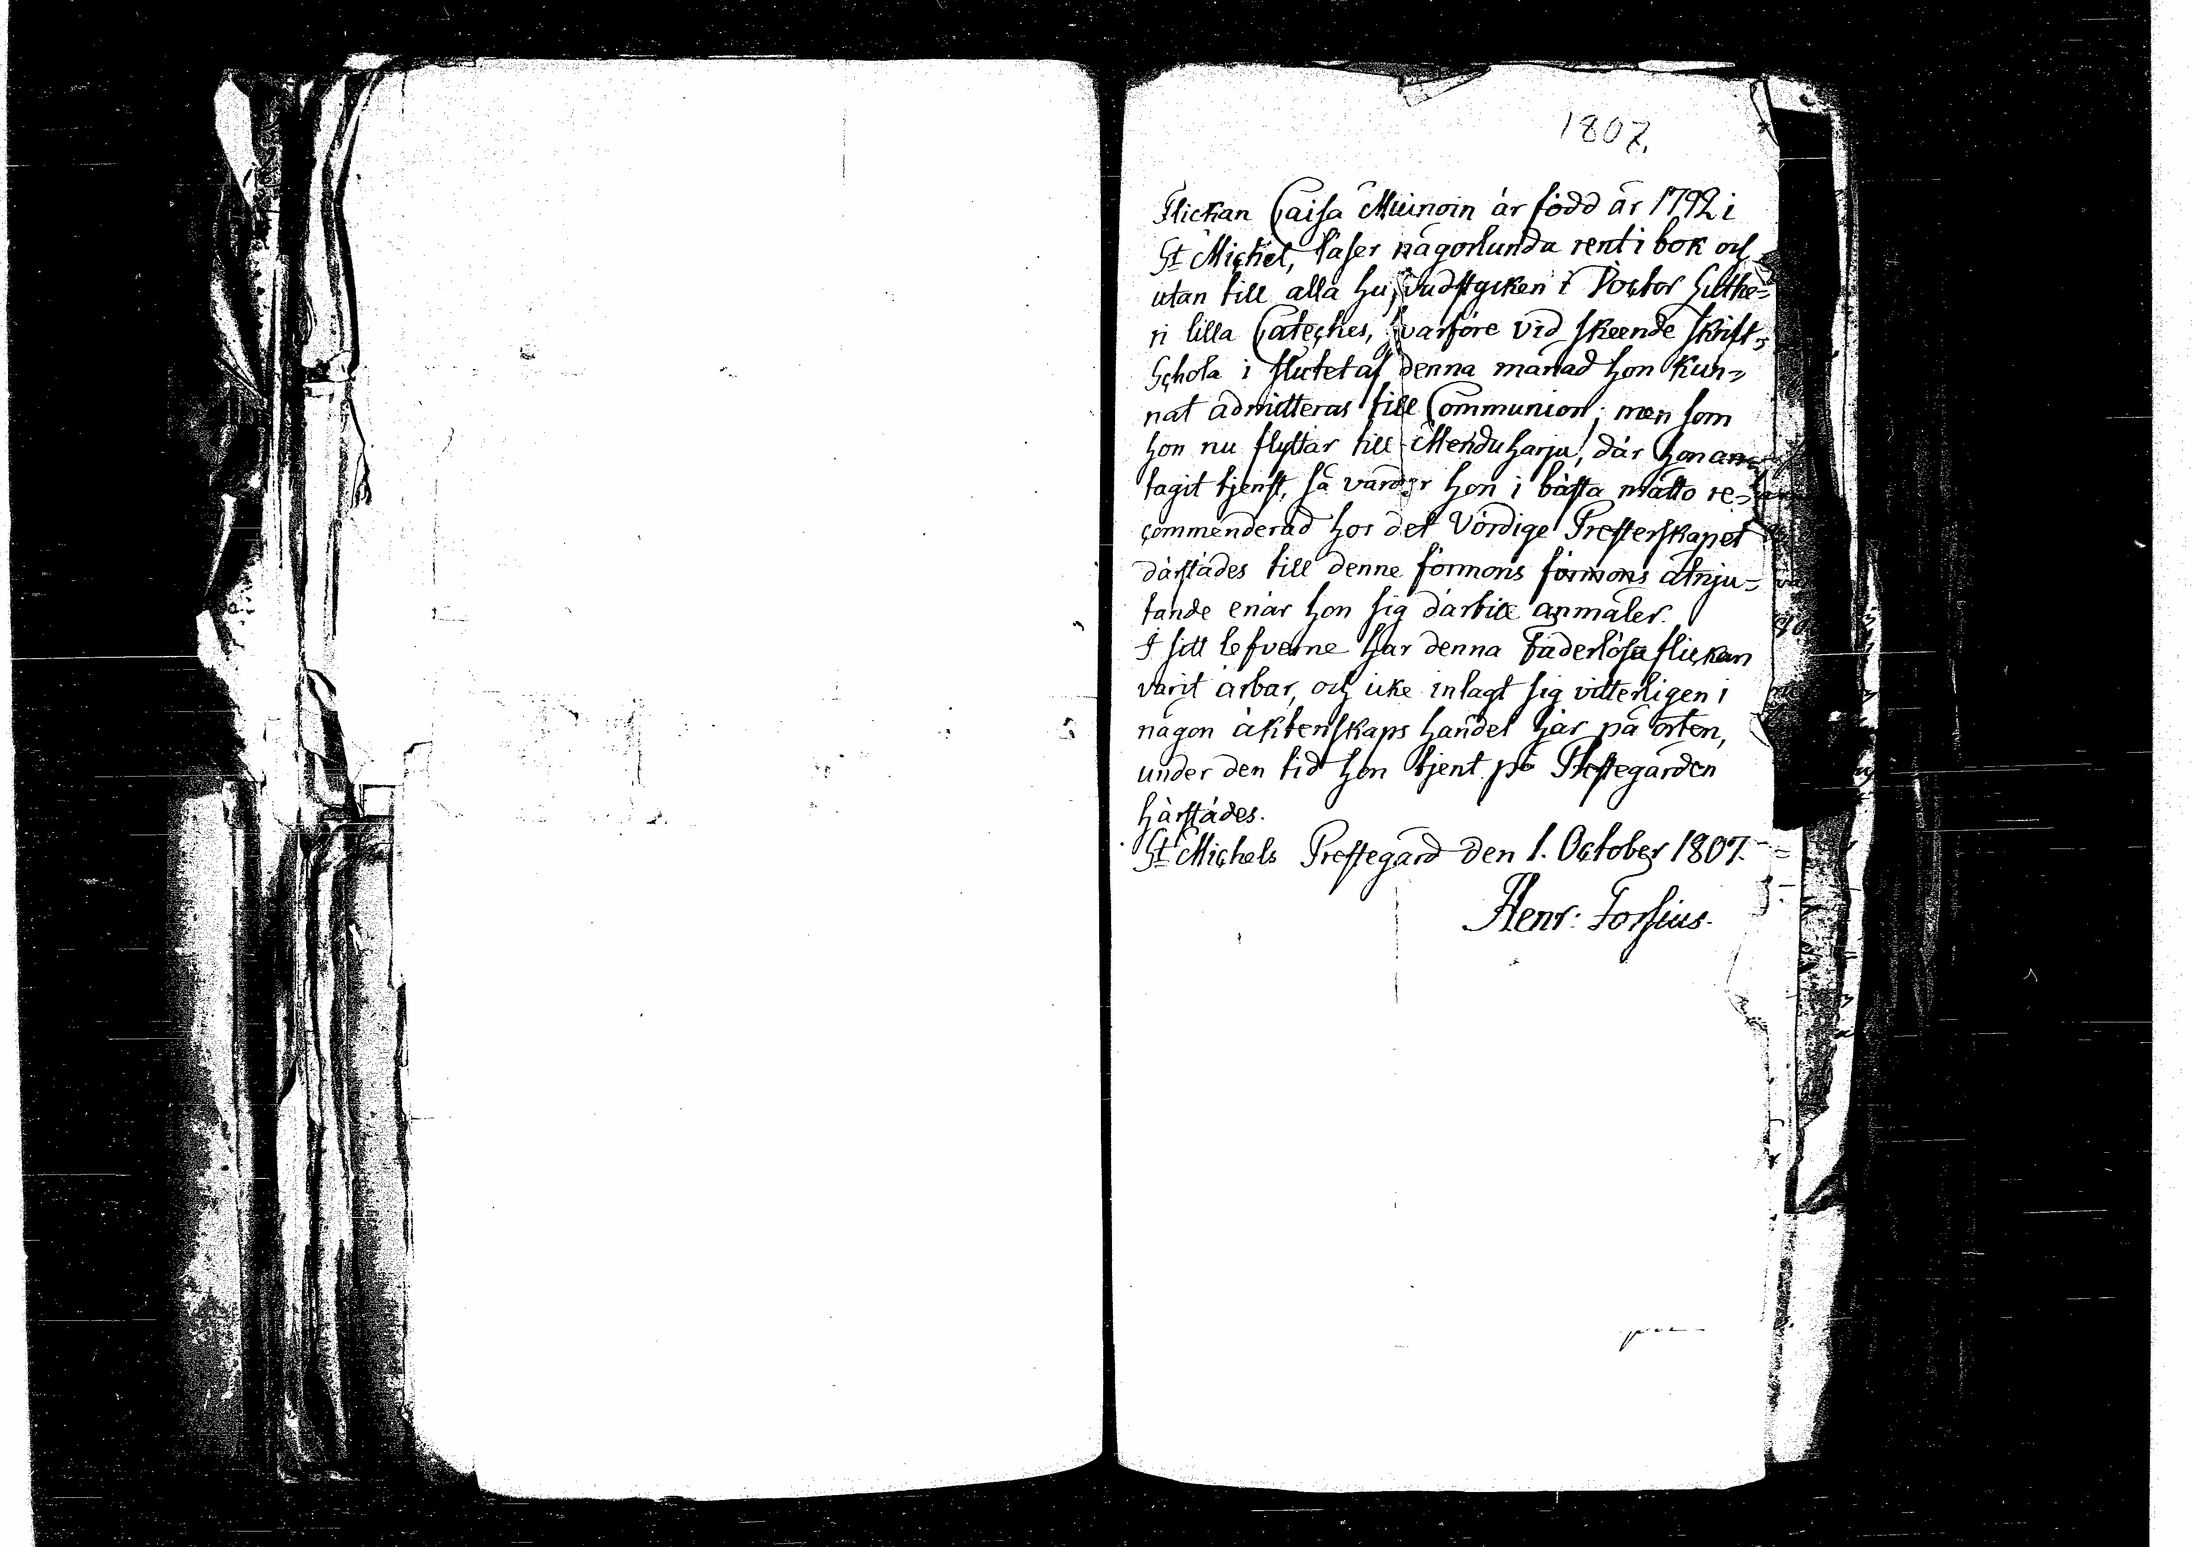 1807.
Flickan Caisa Muinoin är född år 1792 i
St Michel, läser någorlunda rent i bok och
utan till alla hufvudstycken i Doctor Luthe=
ri lilla Catechés, hvarföre vid skeende skrift=
Schola i slutet af denna månad hon kun=
nat admitteras till Communion; men som
hon nu flyttar till Menduharju, där hon an=
tagit tjenst, så varder hon i bästa måtto re=
commenderad hos det Vördige Presterskapet
därstädes till denne förmons förmons åtnju=
tande enär hon sig därtill anmäler.
I sitt lefverne har denna Faderlösa flickan
varit ärbar, och icke inlagt sig vitterligen i
någon äktenskaps handel här på orten,
under den tid hon tjent på Prestegården
härstädes.
St Michels Prestegård den 1. October 1807.
Henr: Forsius.